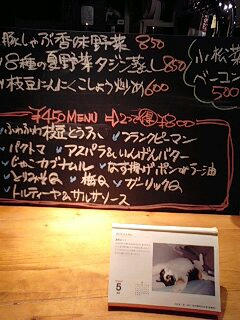 豚しゃぶ香味野菜 850
8種の夏野菜タジン蒸し 850
枝豆にんにくこしょう炒め 600
小松菜
ベーコン
500
¥450 MENU 2つで ¥800
ふわふわ枝豆とうふ ✓フランクピーマン
✓パクトマ ✓アスパラ&いんげんバター
✓じゃこカプナムル ✓なす揚げポン酢ラー油
✓とりみそQ ✓梅Q ✓ガーリックQ
✓トルティーヤ&サルサソース
5